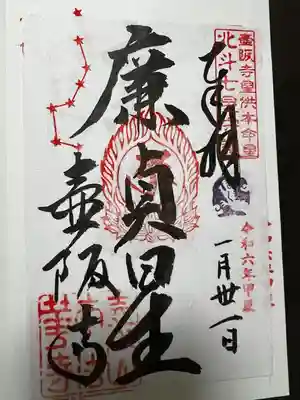 奉拝
壺阪寺星供本命星
北斗七星
令和六年甲辰
一月卅一日
廉貞星
壷阪寺